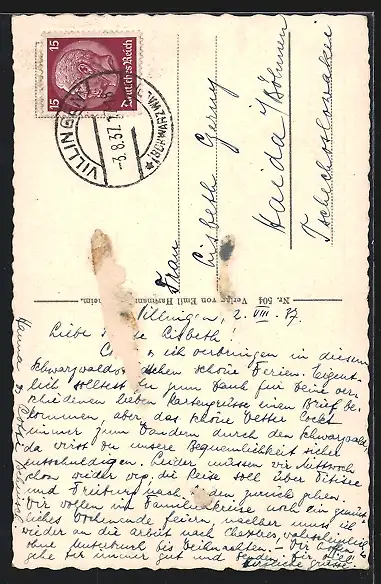 15 15
Deutsches Reich
VILLINGEN
(SCHWARZW
-3.8.37.
Frau
Lisbeth
Haida / Böhmen
Tschechoslowakei
Nr. 504 Verlag von Emil Hartmann
Villingen, 2. VIII. 37.
Liebe Lisbeth!
ich verbringen in diesem
schöne Ferien. Eigent-
lich solltest Du zum Dank für Deine ver-
schiedenen lieben Kartengrüsse einen Brief be-
kommen, aber das schöne Wetter lockt
immer zum Wandern durch den Schwarzwald,
da wirst Du unsere Bequemlichkeit sicher
entschuldigen. Leider müssen wir Mittwoch
schon wieder weg, die Reise soll über Titisee
und Freiburg nach zurück gehen.
Wir wollen im Familienkreise noch ein gemüt-
liches Wochenende feiern, nachher muss ich
wieder an die Arbeit nach wahrscheinlich
ohne Unterbruch bis Weihnachten. – Wir hoffen, es
gehe Dir immer gut und senden Dir
herzliche Grüsse.